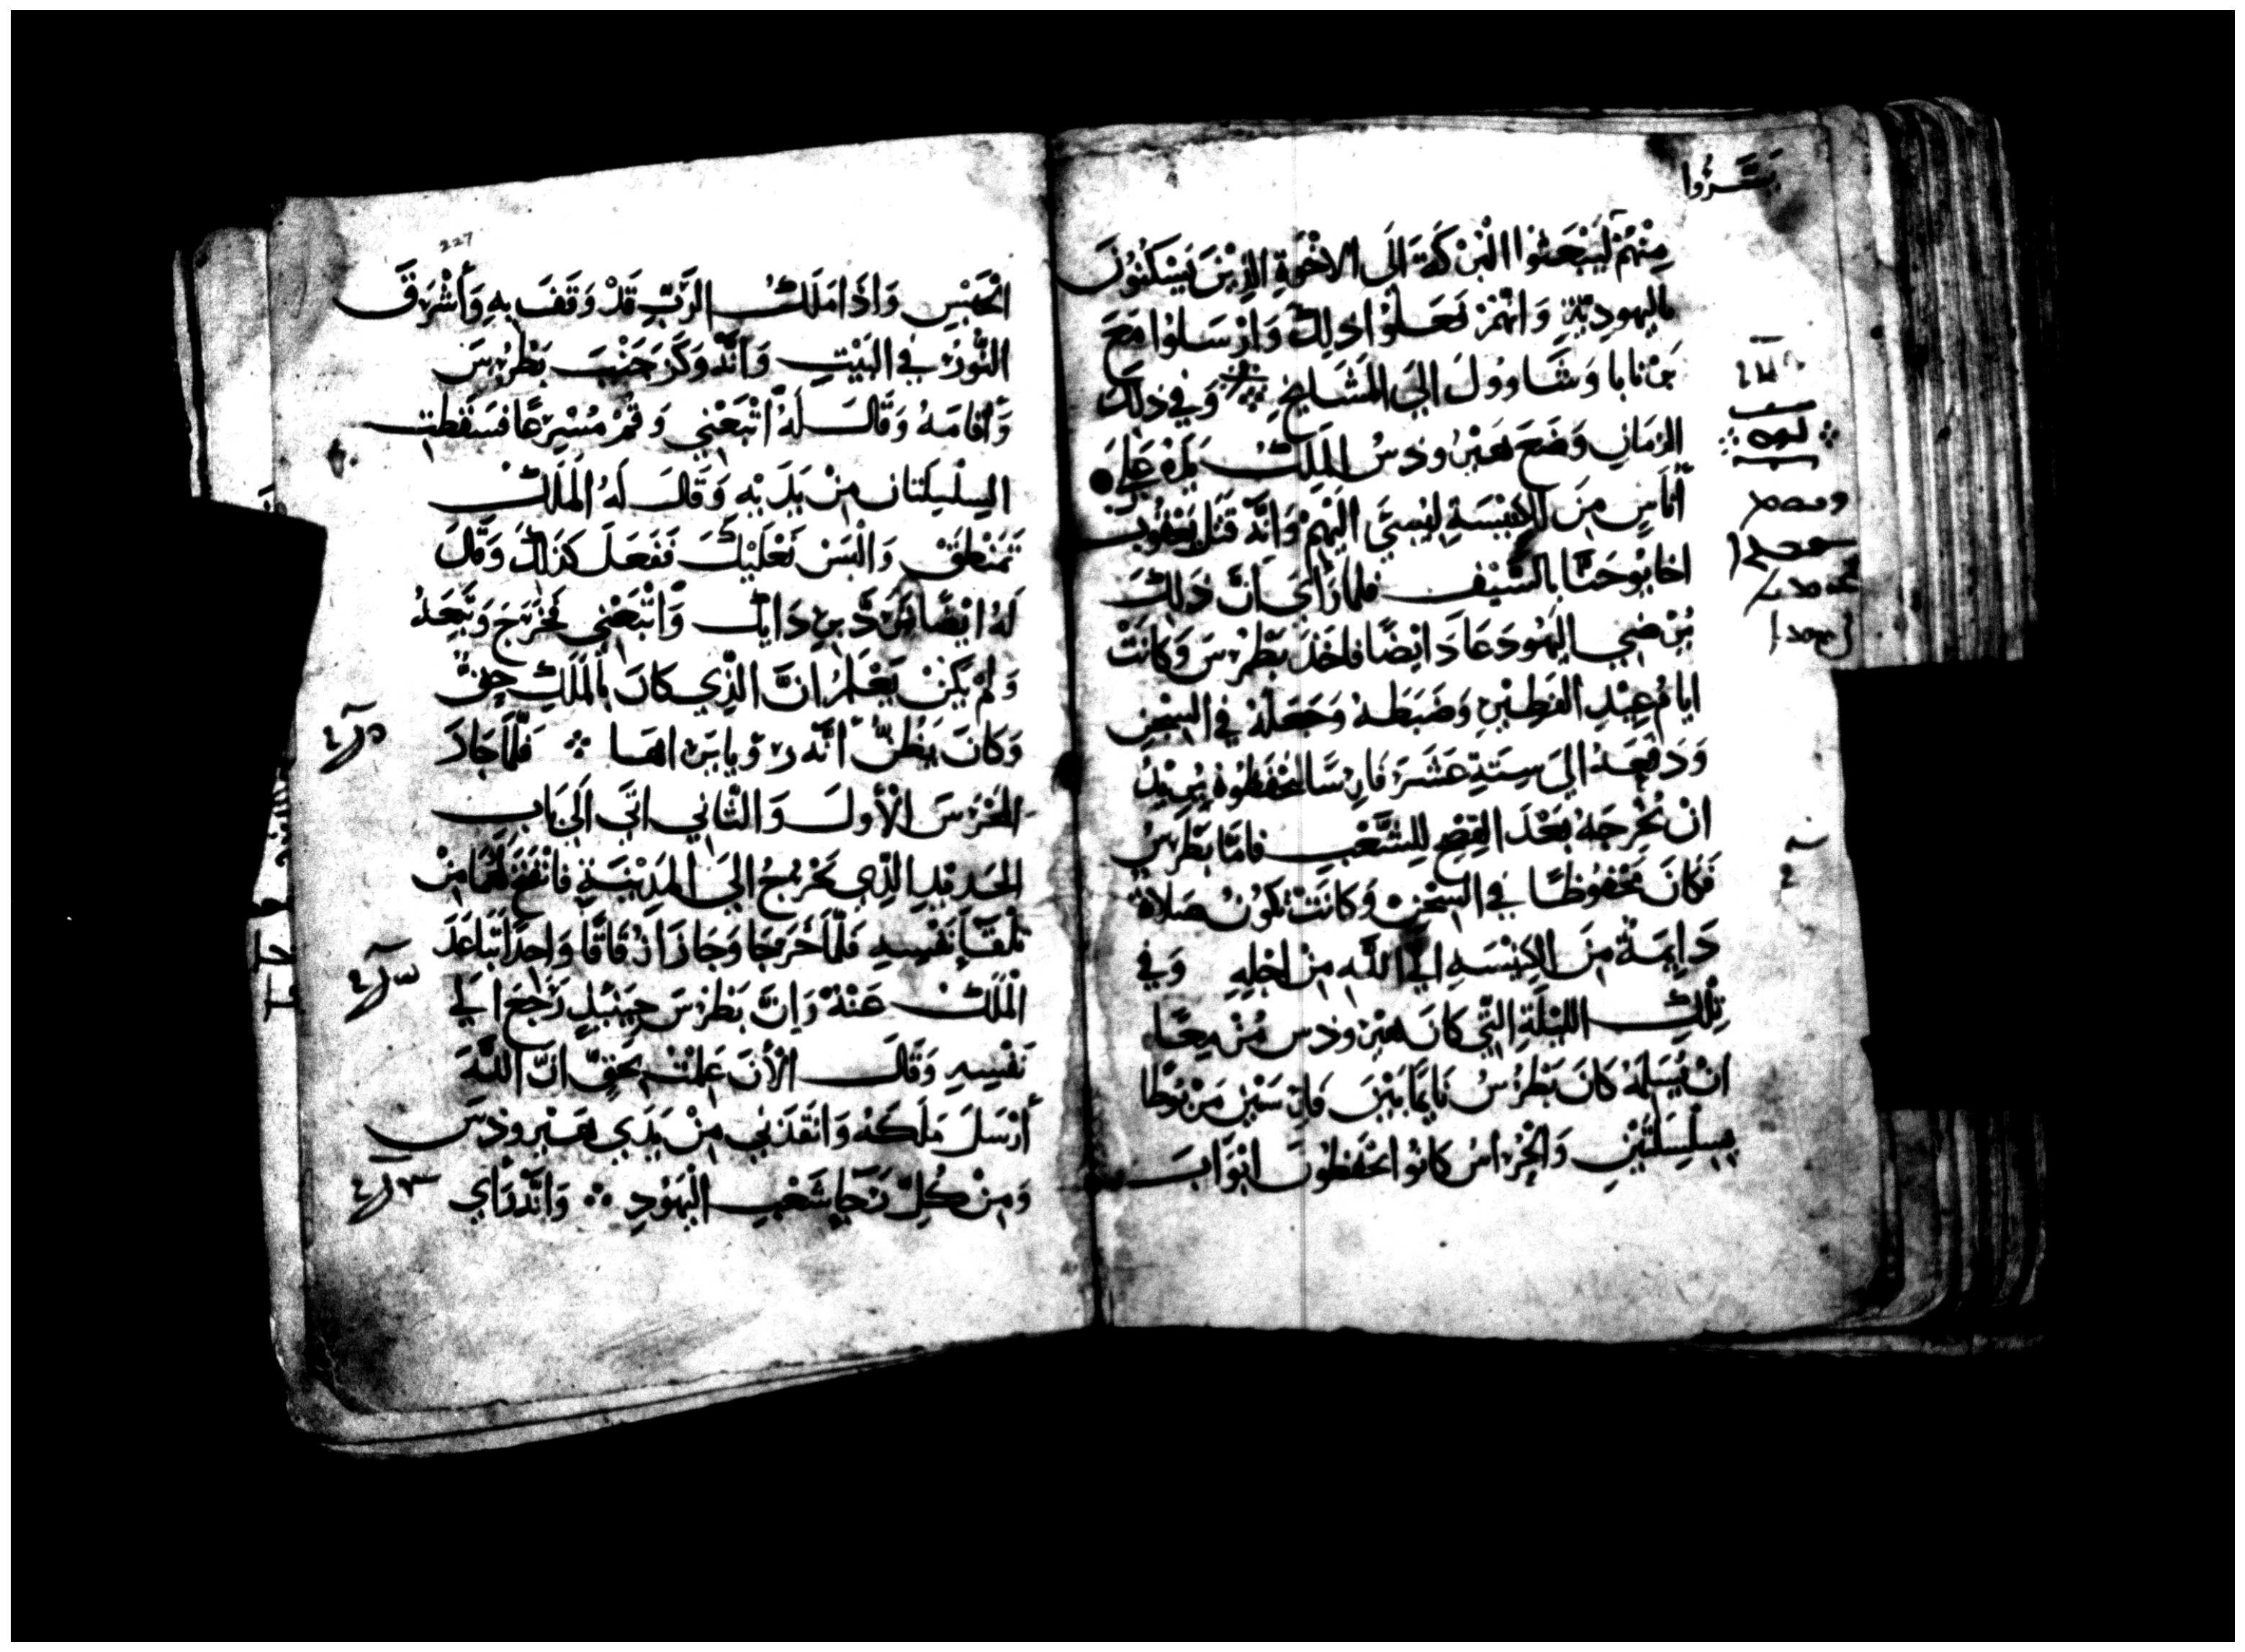 مِنْهُمْ لَيَبْعَثُوا الْبَرَكَةَ الَى الاخْوَةِ الذِيْنَ يَسْكنُونَ
باليهوديّةِ وَانّهُمْ فَعَلُوْا ذلِكَ وَارْسَلوْا مَعَ
بَرنابا وَشَاووُلَ الىَ المَشَايخِ وَفي ذلِكَ
الزمَانِ وَضَعَ هيرُودسُ المَلِكُ يدَهُ عَلى
أُنَاسٍ مِنَ الكنِيْسَةِ ليُسِيَ الَيْهِمْ وَانَّهُ قَتَلَ يَعْقُوبَ
اخا يوْحَنَّا بالسَّيْفِ فلمَا رَاىَ انَّ ذَلِكَ
يُرْضِي اليَهُودَ عَادَ ايْضًا فاخَذَ بَطْرُسَ وَكانَتْ
ايامُ عِيْدِ الفَطِيْرِ وَضَبَطَهُ وَجَعَلَهُ في السِجْنِ
وَدَفَعَهُ الىَ سِتَةِ عَشَرَ فَارِسًا ليَحْفَظوْهُ يُرِيْدُ
انْ يُخْرِجَهُ بَعْدَ الفِصْحِ لِلشَّعْبِ فامَّا بَطْرسُ
فَكَانَ مَحْفُوظًا في السِجْنِ وَكَانَتْ تَكونُ صَلاةٌ
دَايِمَةٌ مِنَ الكِنِيْسَةِ الىَ اللّهِ مِنْ اجْلِهِ وَفي
تِلْكَ اللَيْلَةِ الَّتِي كانَ هيرودس مُزْمِعًا
انْ يُسَلِمَهُ كَانَ بَطْرُسُ نَايِمًا بَيْنَ فَارِسَيْنِ مَرْبوْطًا
بِسِلْسِلَتَيْنِ وَالحُرّاسُ كانوْا يَحْفَظُونَ ابْوَابَ
227
الْحَبْسِ وَاذَا مَلَكُ الرَّبِّ قَدْ وَقَفَ بِهِ وَأشْرَقَ
النُّورُ في البَيْتِ وَانَّهُ وَكَزَ جَنْبَ بَطْرُسَ
وَأقامَهُ وَقَالَ لَهُ اتْبَعْنِي وَقُمْ مُسْرِعًا فسَقَطت
السِلْسِلَتان مِنْ يَدَيْهِ وَقَالَ لَهُ المَلَكُ
تَمَنْطَقْ وَالْبَسْ نَعْلَيْكَ فَفَعَلَ كذَلِكَ وَقَالَ
لَهُ ايْضًا تَرَدَّ برِدَايِكَ وَاتْبَعْنِي فخَرَجَ وَتَبِعَهُ
وَلمْ يَكنْ يَعْلمُ انَّ الذِي كانَ بالمَلَكِ حِقٌّ
وَكانَ يَظُنُّ انَّهُ رُوْيا يَرَاهَا فَلَمَّا جَازَ
المَحْرَسَ الْأولَ وَالثَّاني اتَى الَى بَابِ
الحَدِيْدِ الذِي يَخْرُجُ الىَ المَدِيْنَةِ فانْفَتَحَ لَهُمَا مِنْ
تِلْقَاءِ نَفْسِهِ فَلَمَّا خَرَجَا وَجَازَا زُقَاقًا وَاحِدًا تَبَاعَدَ
الْمَلَكُ عَنْهُ وَإنَّ بَطْرُسَ حِيْنَيْذٍ رَجَعَ الي
نَفْسِهِ وَقَالَ الْأنَ عَلِمْتُ بحَقٍّ انَّ اللّهَ
أَرْسَلَ مَلَكَهُ وَانْقَذنِي مِنْ يَدَي هيْرودسَ
وَمِنْ كُلِّ رَجَاءِ شَعْبِ الْيَهُوْدِ وَانَّهُ رَاي